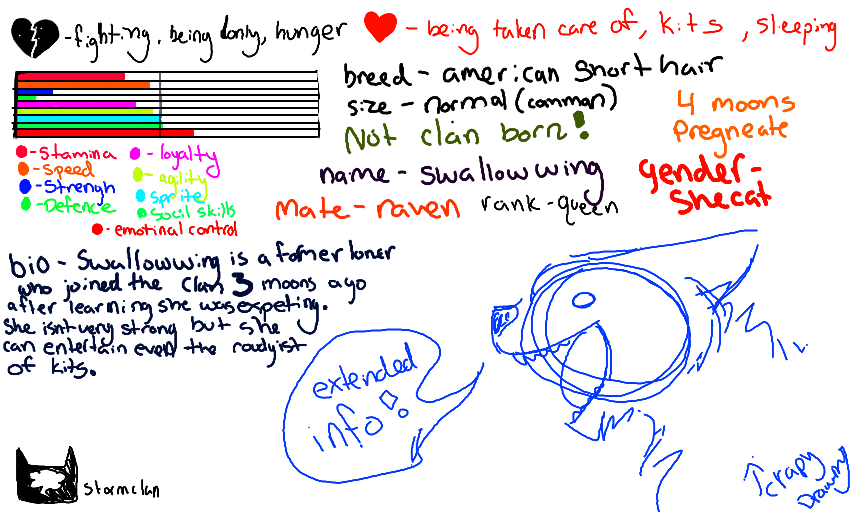 -fighting, being lonly, hunger
- being taken care of, kits, sleeping
breed - american short hair
size - normal (comman)
4 moons
Pregneate
Not clan born!
name - swallowwing
gender-
shecat
mate - raven
rank - queen
-Stamina
-Speed
-Strengh
-Defence
- loyalty
- aglity
- sprite
- socil skills
- emotinal control
bio - Swallowwing is a fomer loner
who joined the clan 3 moons ago
after learning she was expeting.
She isnt very strong but she
can entertain even the roudyist
of kits.
extended
info!
Stormclan
↑ crapy
Drawing